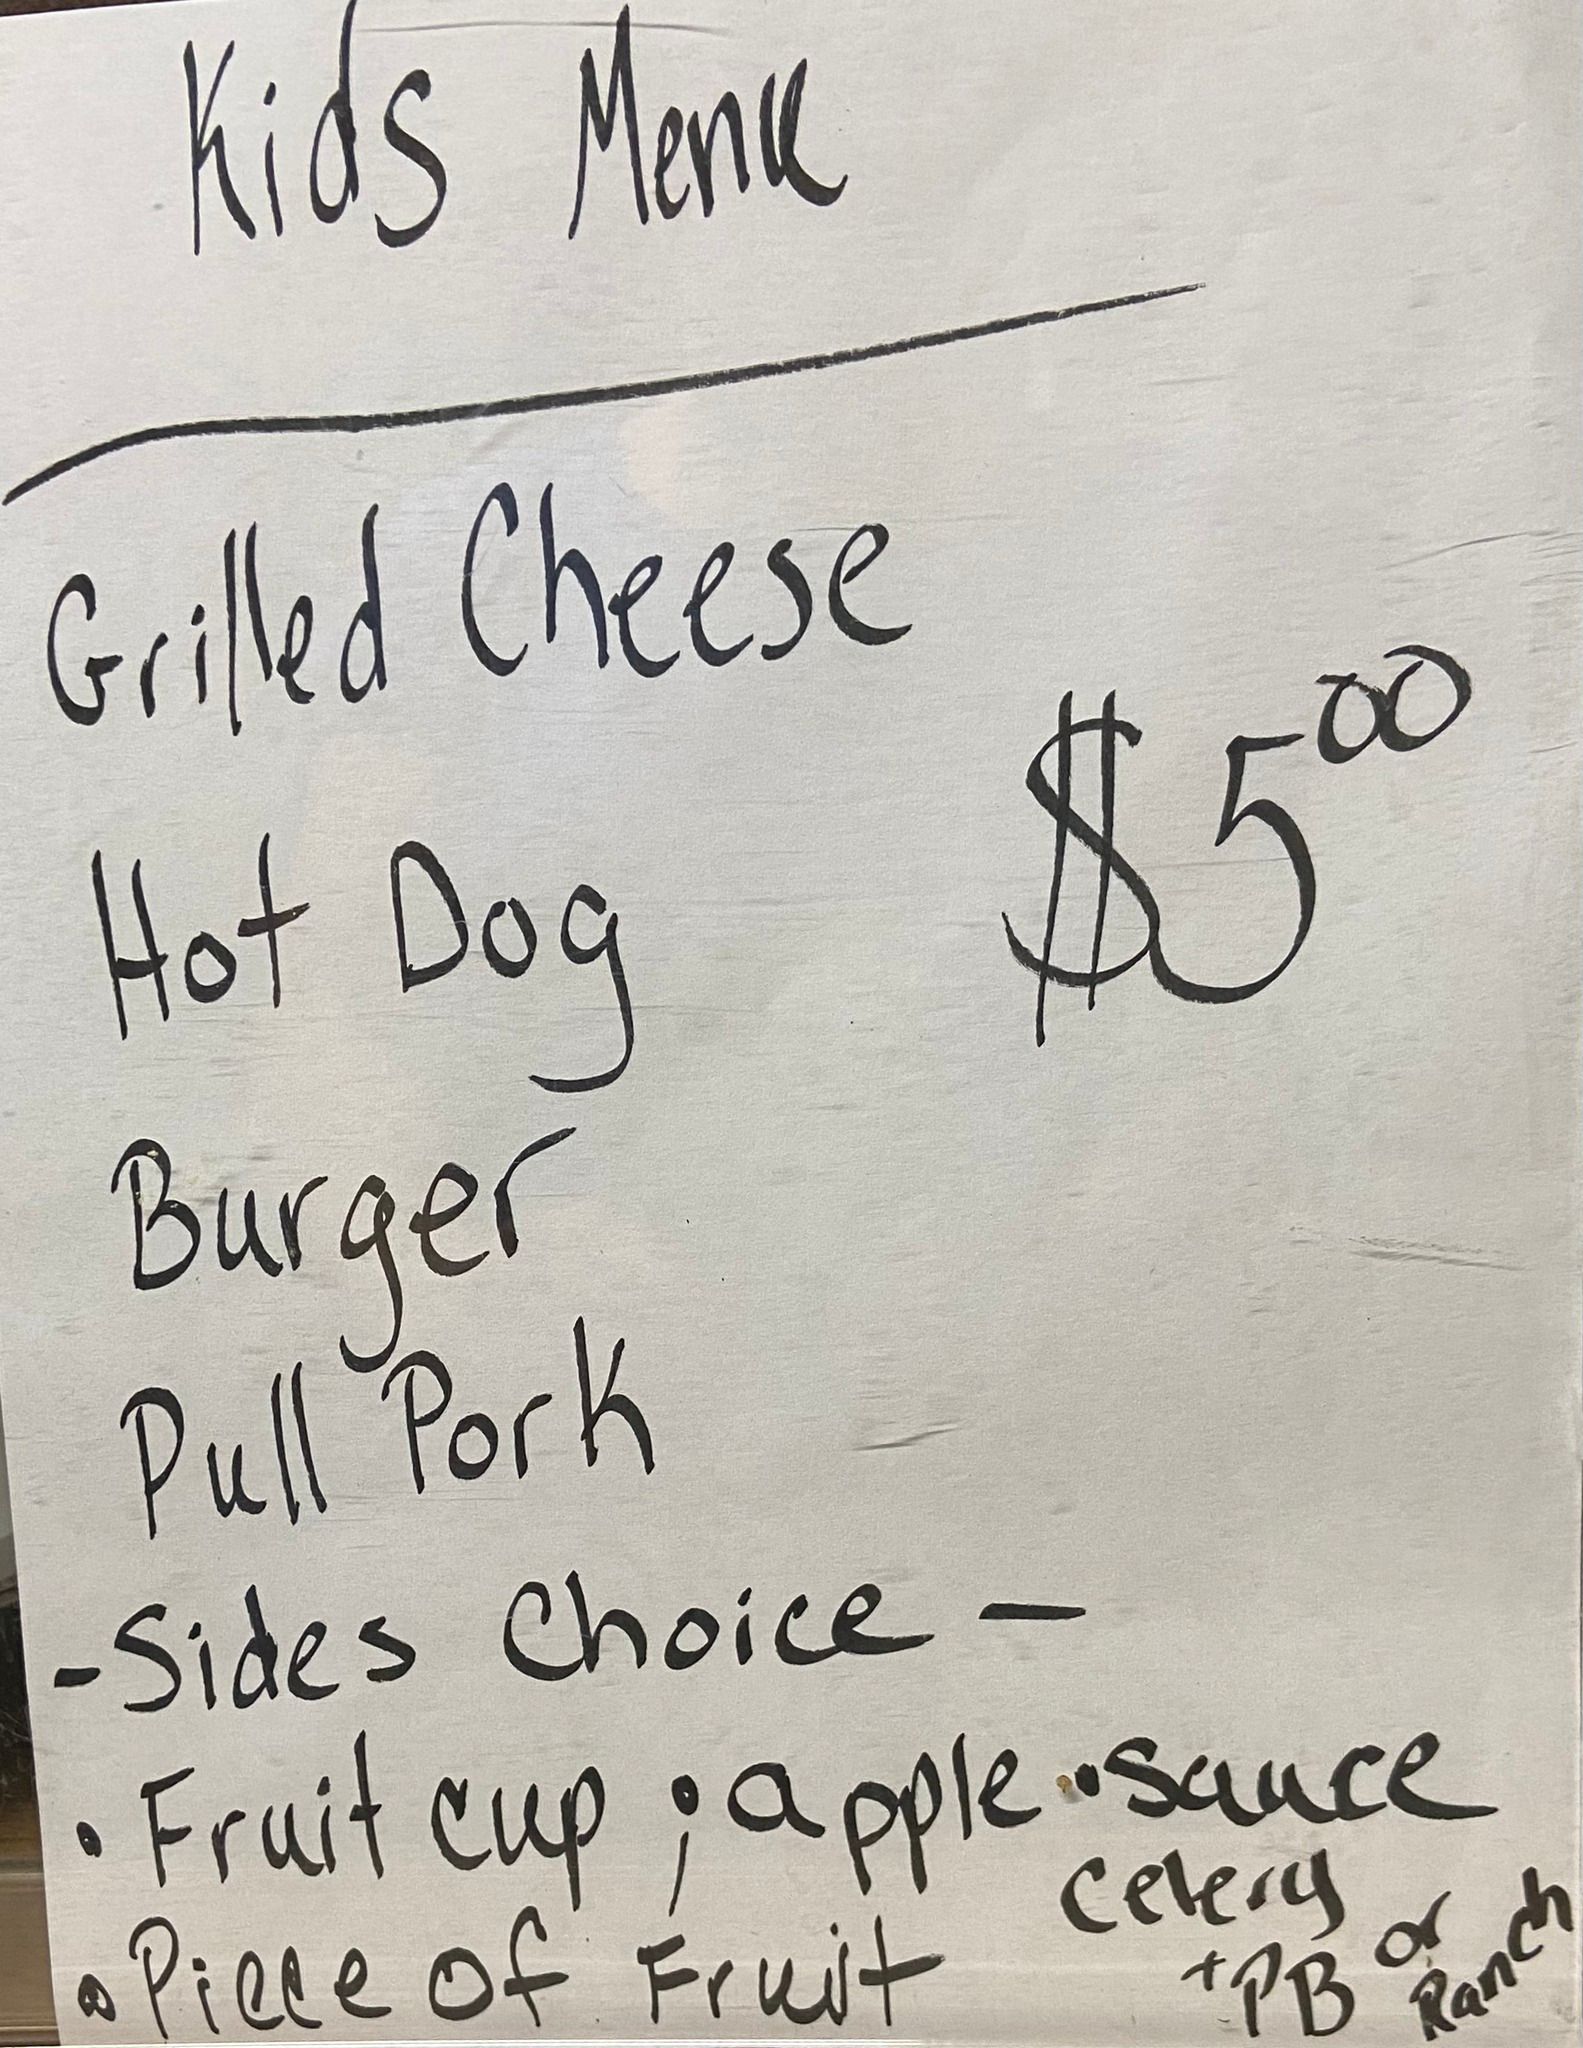 Kids Menu
Grilled Cheese
$5.00
Hot Dog
Burger
Pull Pork
-Sides Choice-
• Fruit cup ; apple • sauce
• Piece of Fruit
Celery
+PB or
Ranch